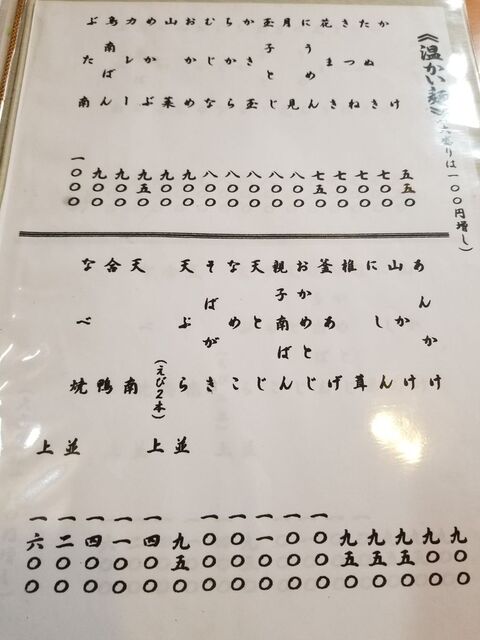 《温かい麺》(大盛りは一〇〇円増し)
かけ 五五〇
たぬき 七〇〇
きつね 七〇〇
花まき 七〇〇
にうめん 七五〇
月見 八〇〇
玉子とじ 八〇〇
かき玉 八〇〇
ちから 八〇〇
むじな 八〇〇
おかめ 九〇〇
山菜 九〇〇
めかぶ 九五〇
カレー 九〇〇
鳥南ばん 九〇〇
ぶた南 一〇〇〇
あんかけ 九〇〇
山かけ 九〇〇
にしん 九五〇
椎茸 九五〇
釜あげ 九五〇
おかめとじ 一〇〇〇
親子南ばん 一〇〇〇
天とじ 一一〇〇
なめこ 一〇〇〇
そばがき 一〇〇〇
天ぷら 並 九五〇
(えび2本) 上 一四〇〇
天南 一一〇〇
合鴨 一四〇〇
なべ焼 並 一二〇〇
上 一六〇〇